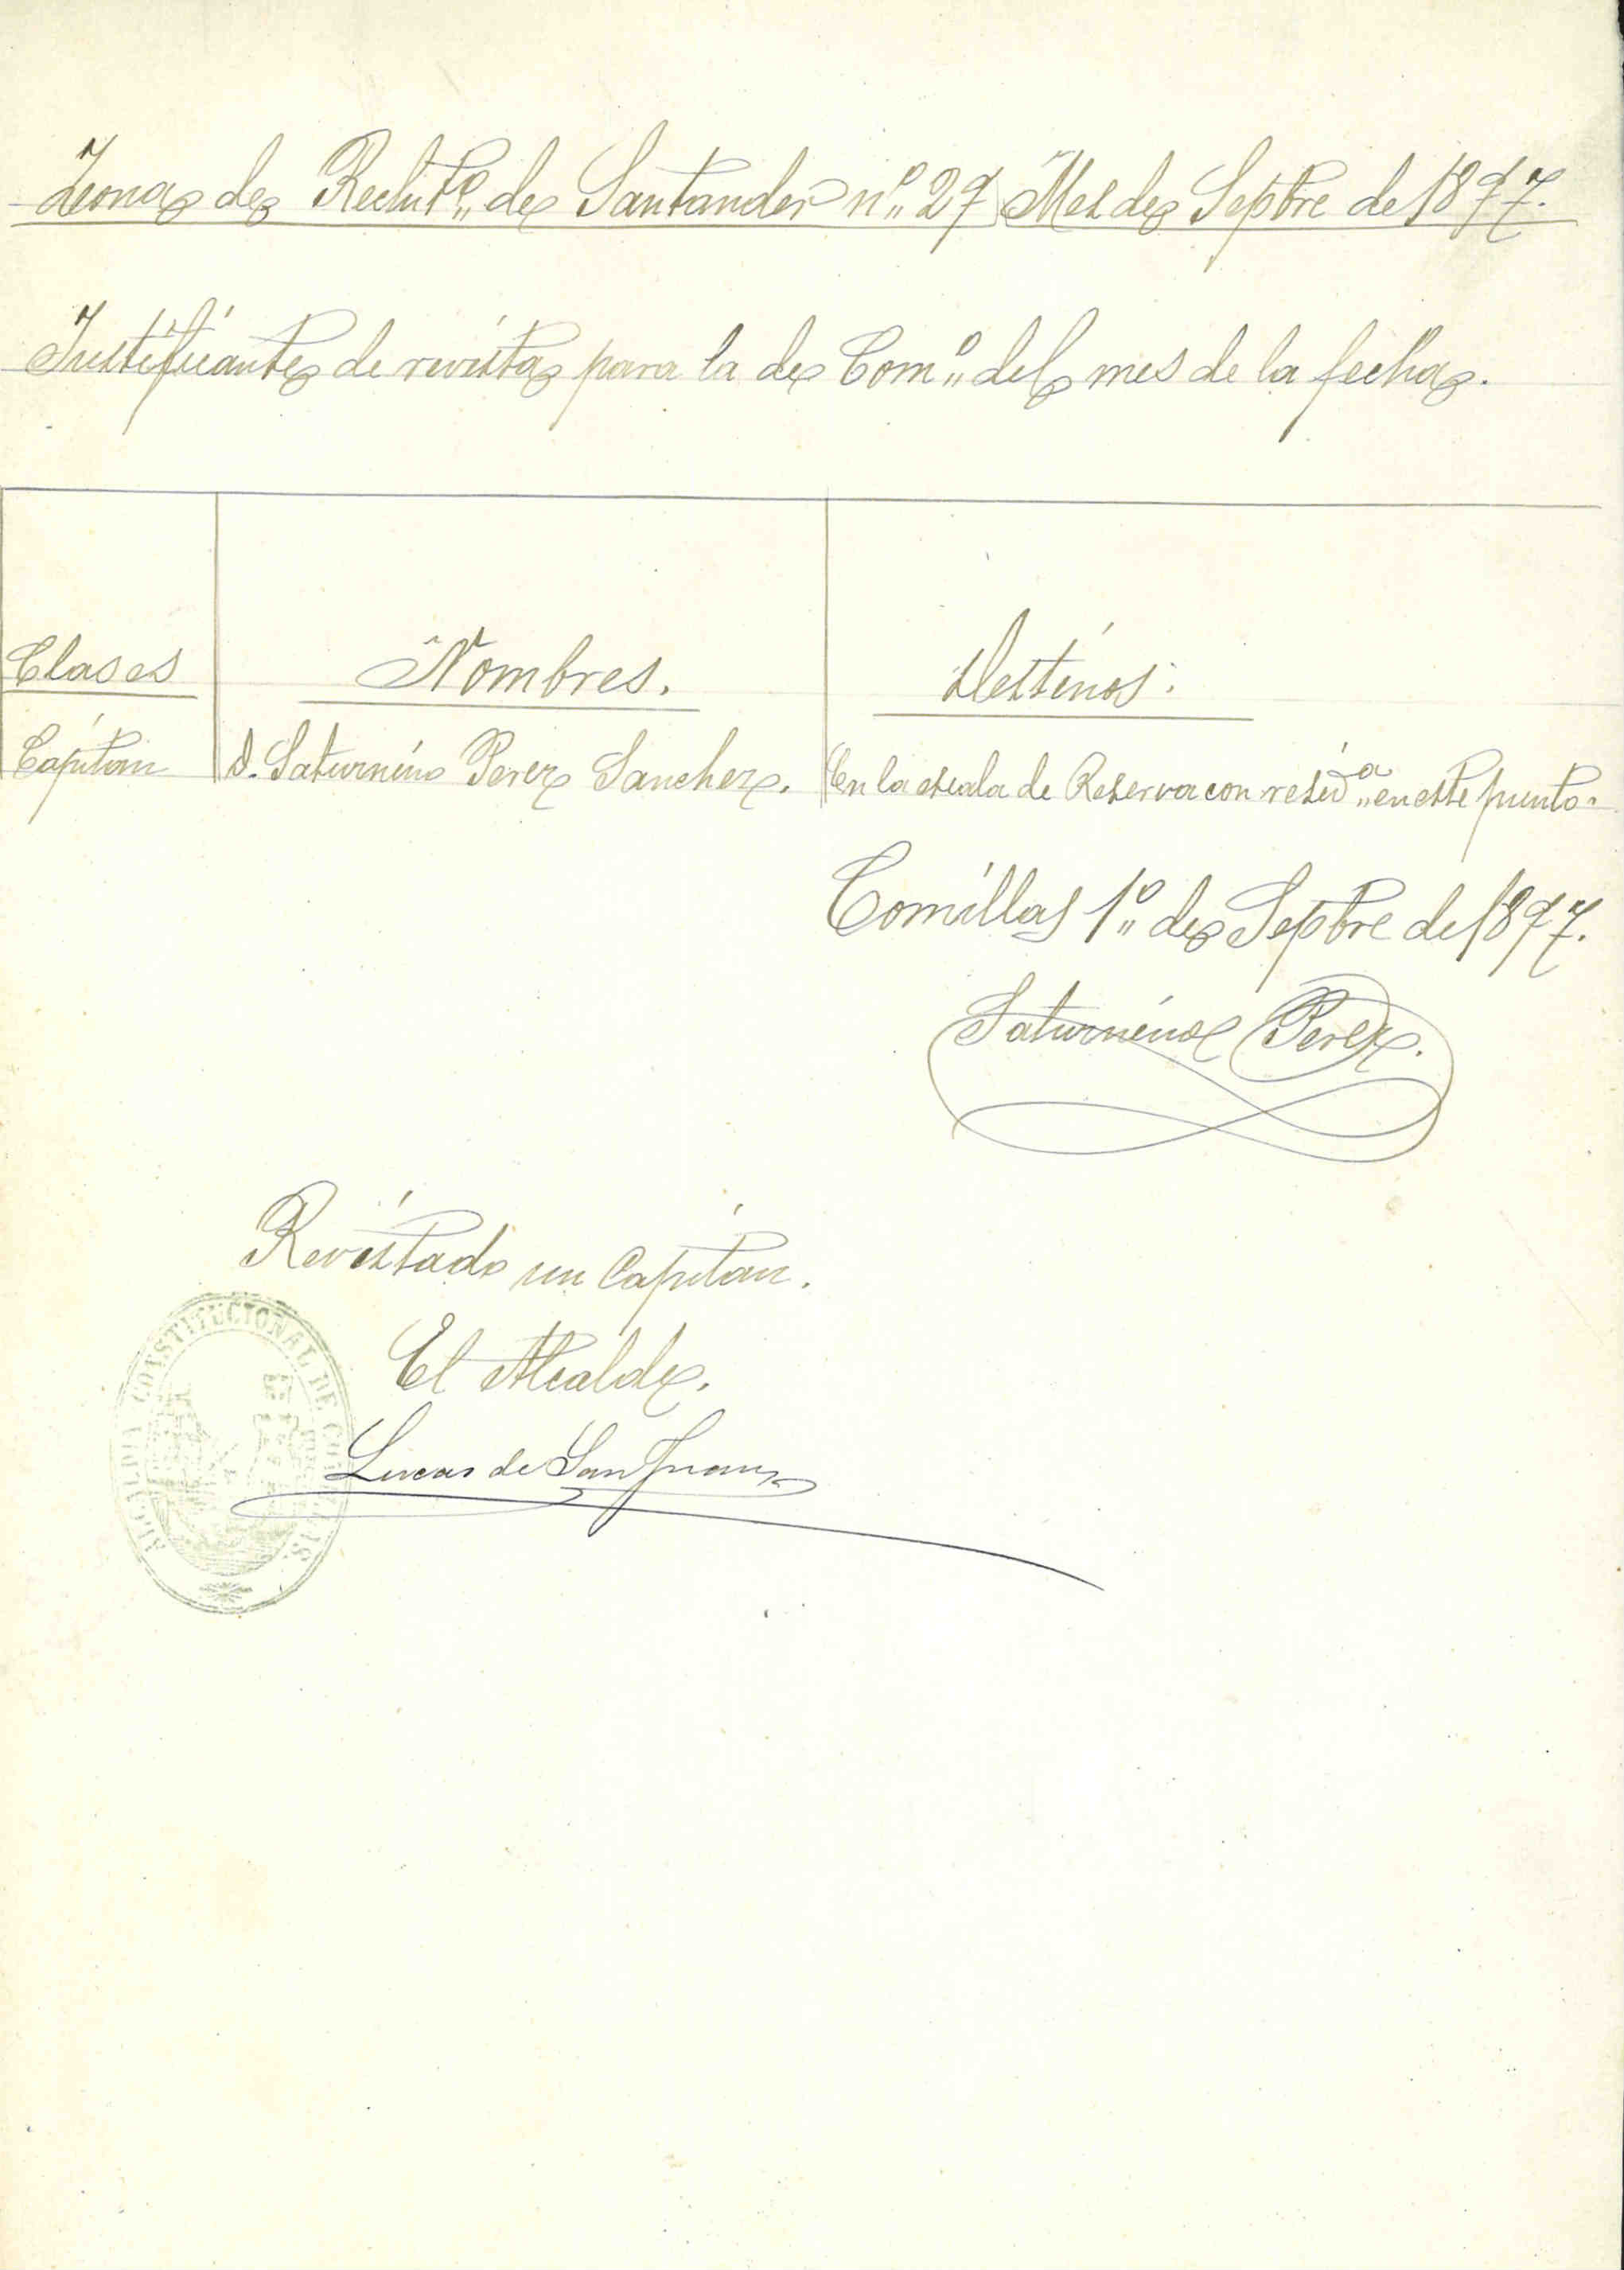 Zona de Reclutº de Santander nº 29 Mes de Septbre de 1897.
Justificante de revista para la de Comº del mes de la fecha.
Clases
Nombres.
Destinos.
Capitan
D. Saturnino Perez Sanchez.
En la escala de Reserva con residª en este punto.
Comillas 1º de Septbre de 1897.
Saturnino Perez.
Revistado un Capitan.
El Alcalde,
Lucas de San Juan
ALCALDIA CONSTITUCIONAL DE COMILLAS